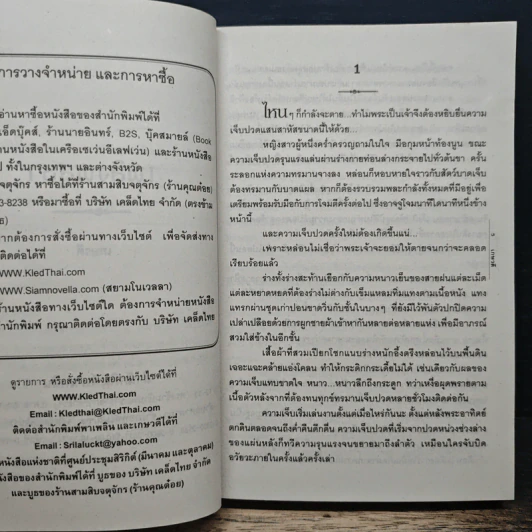 การวางจำหน่าย และการหาซื้อ
อ่านหาซื้อหนังสือของสำนักพิมพ์ได้ที่
เอ็ดบุ๊คส์, ร้านนายอินทร์, B2S, บุ๊คสมายล์ (Book
ร้านหนังสือในเครือเซเว่นอีเลฟเว่น) และร้านหนังสือ
ป ทั้งในกรุงเทพฯ และต่างจังหวัด
จตุจักร หาซื้อได้ที่ร้านสามสิบจตุจักร (ร้านคุณต๋อย)
3-8238 หรือมาซื้อที่ บริษัท เคล็ดไทย จำกัด (ตรงข้าม
ากต้องการสั่งซื้อผ่านทางเว็บไซต์ เพื่อจัดส่งทาง
ติดต่อได้ที่
WWW.KledThai.com
WWW.Siamnovella.com (สยามโนเวลลา)
ร้านหนังสือทางเว็บไซต์ใด ต้องการจำหน่ายหนังสือ
สำนักพิมพ์ กรุณาติดต่อโดยตรงกับ บริษัท เคล็ดไทย
ดูรายการ หรือสั่งซื้อหนังสือผ่านเว็บไซต์ได้ที่
WWW.KledThai.com
Email : Kledthai@KledThai.com
ติดต่อสำนักพิมพ์พาเพลิน และเกษวดีได้ที่
Email : Srilaluckt@yahoo.com
หนังสือแห่งชาติที่ศูนย์ประชุมสิริกิติ์ (มีนาคม และตุลาคม)
หนังสือของสำนักพิมพ์ได้ที่ บูธของ บริษัท เคล็ดไทย จำกัด
และบูธของร้านสามสิบจตุจักร (ร้านคุณต๋อย)
1
ไหนๆ ก็กำลังจะตาย...ทำไมพระเป็นเจ้าจึงต้องหยิบยื่นความ
เจ็บปวดแสนสาหัสขนาดนี้ให้ด้วย...
หญิงสาวผู้หนึ่งคร่ำครวญถามในใจ มือกุมหน้าท้องนูน ขณะ
ความเจ็บปวดรุนแรงแล่นผ่านร่างกายท่อนล่างกระจายไปทั่วต้นขา ครั้น
ระลอกแห่งความทรมานจางลง หล่อนก็หอบหายใจราวกับสัตว์บาดเจ็บ
ต้องทรมานกับบาดแผล หากก็ต้องรวบรวมพละกำลังทั้งหมดที่มีอยู่เพื่อ
เตรียมพร้อมรับมือกับการโจมตีครั้งต่อไป ซึ่งอาจจู่โจมนาทีใดนาทีหนึ่งข้าง
หน้านี้
และความเจ็บปวดครั้งใหม่ต้องเกิดขึ้นแน่...
เพราะหล่อนไม่เชื่อว่าพระเจ้าจะยอมให้ตายจนกว่าจะคลอด
เรียบร้อยแล้ว
ร่างทั้งร่างสะท้านเยือกกับความหนาวเย็นของสายฝนแต่ละเม็ด
แต่ละหยาดหยดที่ต้องร่างไม่ต่างกับเข็มแหลมทิ่มแทงตามเนื้อหนัง แทง
แทรกผ่านชุดเก่าปอนขาดวิ่นกับชั้นในบางๆ ที่ยังมีไว้พันตัวปกปิดความ
เปล่าเปลือยด้วยการผูกชายผ้าเข้าหากันหลายต่อหลายแห่ง เพื่อมีอาภรณ์
สวมใส่ข้างในอีกชั้น
เสื้อผ้าที่สวมเปียกโชกแนบร่างหนักอึ้งตรึงหล่อนไว้บนพื้นดิน
เฉอะแฉะคล้ายแอ่งโคลน ทำให้กระดิกกระเดี้ยไม่ได้ เช่นเดียวกับผลของ
ความเจ็บแทบขาดใจ หนาว...หนาวลึกถึงกระดูก ทว่าเหงื่อผุดพรายตาม
เนื้อตัวหลังจากที่ต้องทนทุกข์ทรมานเจ็บปวดหลายชั่วโมงติดต่อกัน
ความเจ็บเริ่มเล่นงานตั้งแต่เมื่อไหร่กันนะ ตั้งแต่หลังพระอาทิตย์
ตกดินตลอดจนถึงค่ำคืนดึกดื่น ความเจ็บปวดที่เริ่มจากปวดหน่วงช่วงล่าง
ของแผ่นหลังก็ทวีความรุนแรงจนขยายมาถึงลำตัว เหมือนใครจับบิด
อวัยวะภายในครั้งแล้วครั้งเล่า